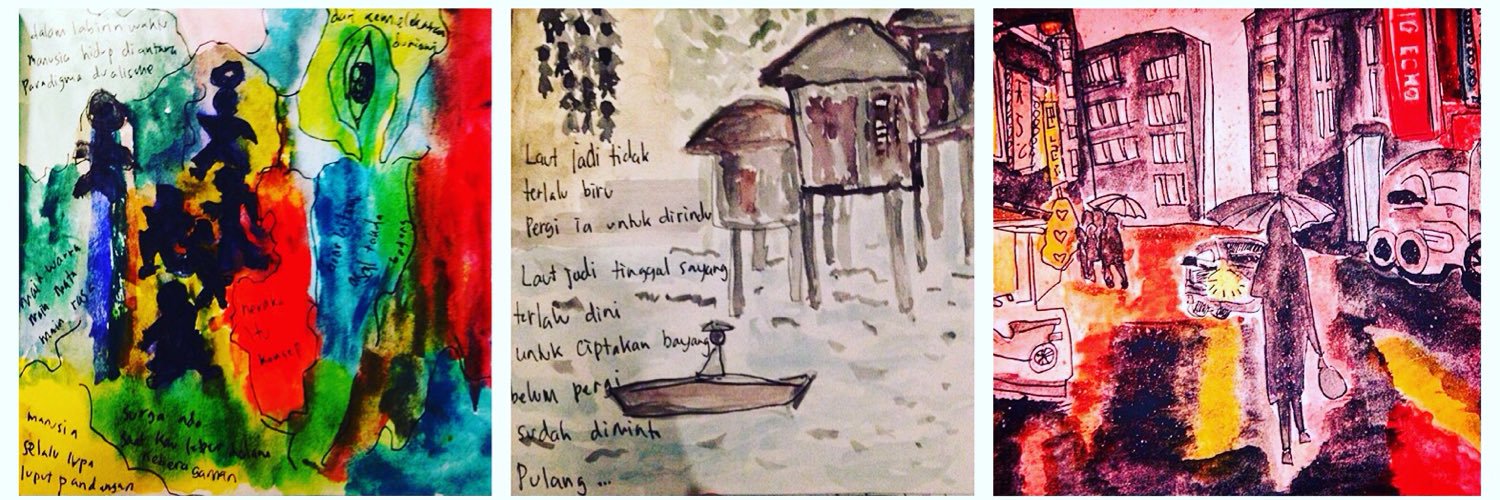 dalam labirin waktu
manusia hidup diantara
Paradigma dualisme
dan
main warna
main mata
main rasa
neraka
itu
konsep
manusia
selalu lupa
luput pandangan
surga ada
saat kau lebur dalam
keberagaman
Laut jadi tidak
terlalu biru
Pergi Ia untuk dirindu
Laut jadi tinggal sayang
terlalu dini
untuk ciptakan bayang
belum pergi
sudah diminta
Pulang ...
IG ECHO